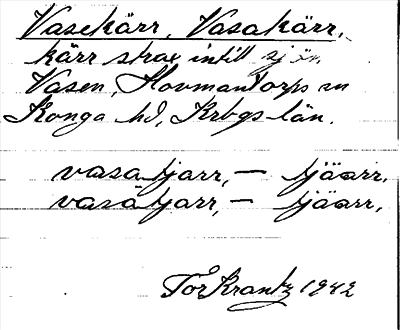 Vasekärr, Vasakärr,
kärr strax intill sjön
Vasen, Hovmantorps sn
Konga hd, Krbgs län.
vasatjarr, – tjäarr,
vasätjarr, – tjäarr,
Tor Krantz 1942